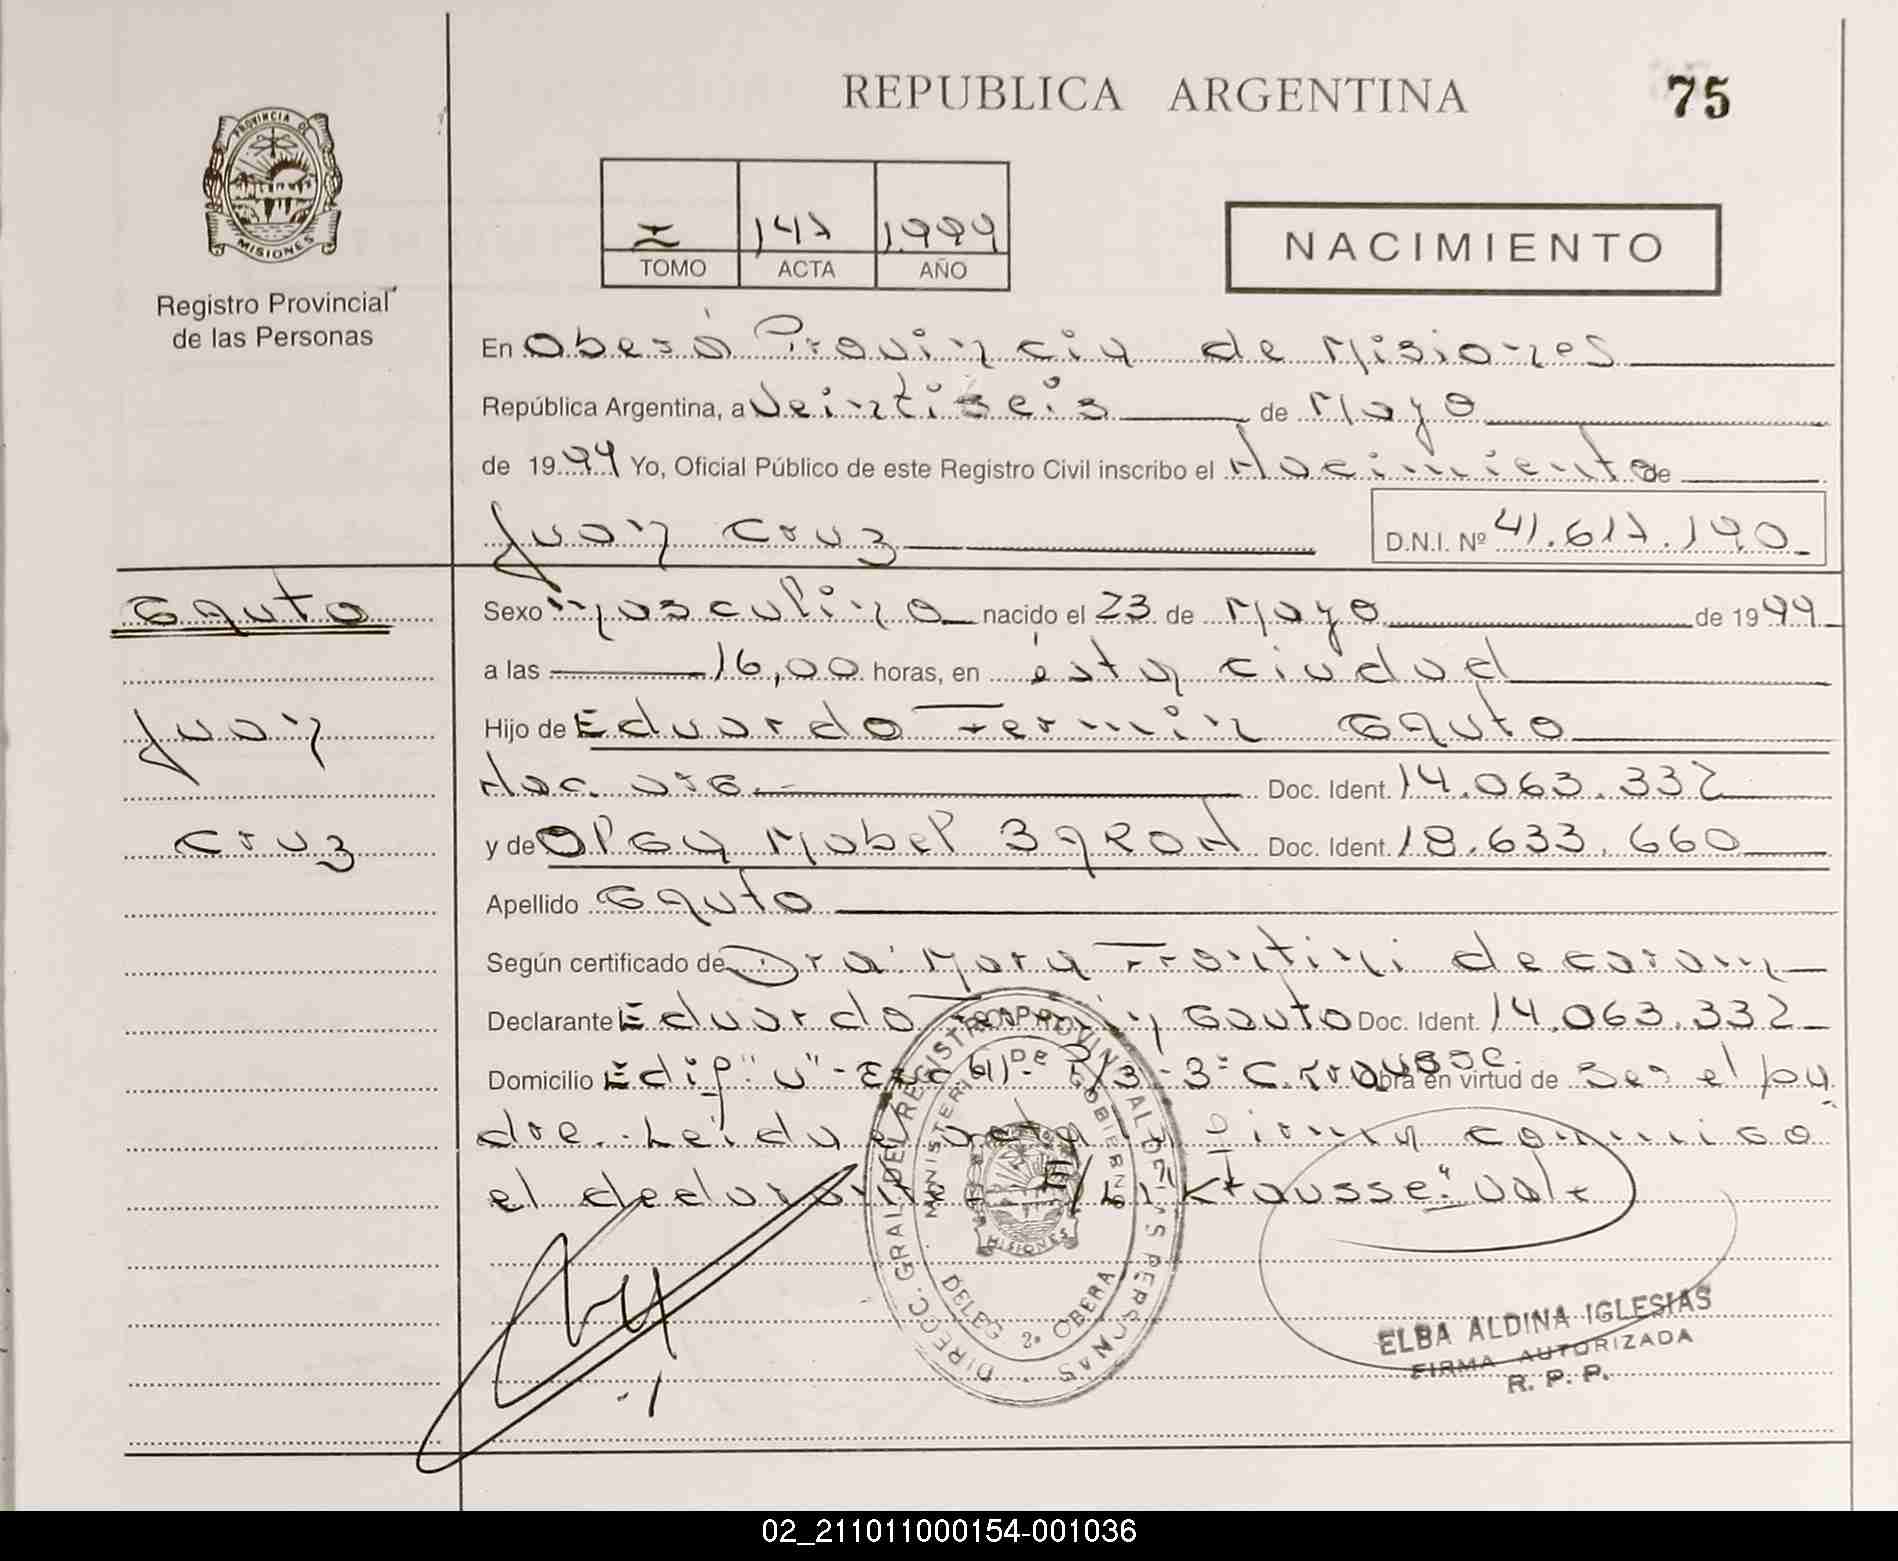 REPUBLICA ARGENTINA
75
PROVINCIA DE
MISIONES
Registro Provincial
de las Personas
I 147 1.999
TOMO ACTA AÑO
NACIMIENTO
En Oberá Provincia de Misiones
República Argentina, a Veintiseis de Mayo
de 1999 Yo, Oficial Público de este Registro Civil inscribo el Nacimiento de
Juan Cruz
D.N.I. Nº 41.617.190
Gauto
Juan
Cruz
Sexo masculino nacido el 23 de Mayo de 1999
a las 16,00 horas, en ésta ciudad
Hijo de Eduardo Fermin Gauto
Nac. arg. Doc. Ident. 14.063.332
y de Olga Mabel BARON Doc. Ident. 18.633.660
Apellido Gauto
Según certificado de Dra Mara Frontini de
Declarante Eduardo Fermin Gauto Doc. Ident. 14.063.332
Domicilio Edif "U" - 3º C. Krausse. Obra en virtud de ser el pa
dre. Leida el acta la firma conmigo
el declarante E/L: Krausse: Vale
DIRECC. GRAL. DEL REGISTRO PROVINCIAL DE LAS PERSONAS
MINISTERIO DE GOBIERNO
MISIONES
DELEG 2ª OBERA
ELBA ALDINA IGLESIAS
FIRMA AUTORIZADA
R. P. P.
02_211011000154-001036